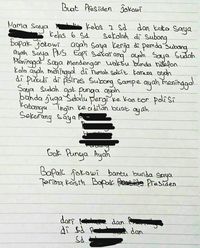 Buat Presiden jokowi
Maria Saya kelas 2 sd dan kaka Saya
kelas 6 Sd sekolah di Subang
Bapak jokowi ayah Saya kerja di pemda Subang
ayah Saya PNS tapi Sekarang ayah Saya Sudah
Meninggal Saya Mendengar waktu bunda telefon
kata ayah meninggal di rumah sakit karena ayah
di Pukuli di polres Subang Sampe ayah meninggal
Saya Sudah gak punya ayah
bunda juga selalu pergi ke kantor polisi
katanya ingin keadilan buat ayah
Sekarang saya
Gak Punya Ayah
Bapak jokowi bantu bunda saya
terima kasih Bapak Presiden
dari dan
di Sd dan
Sd